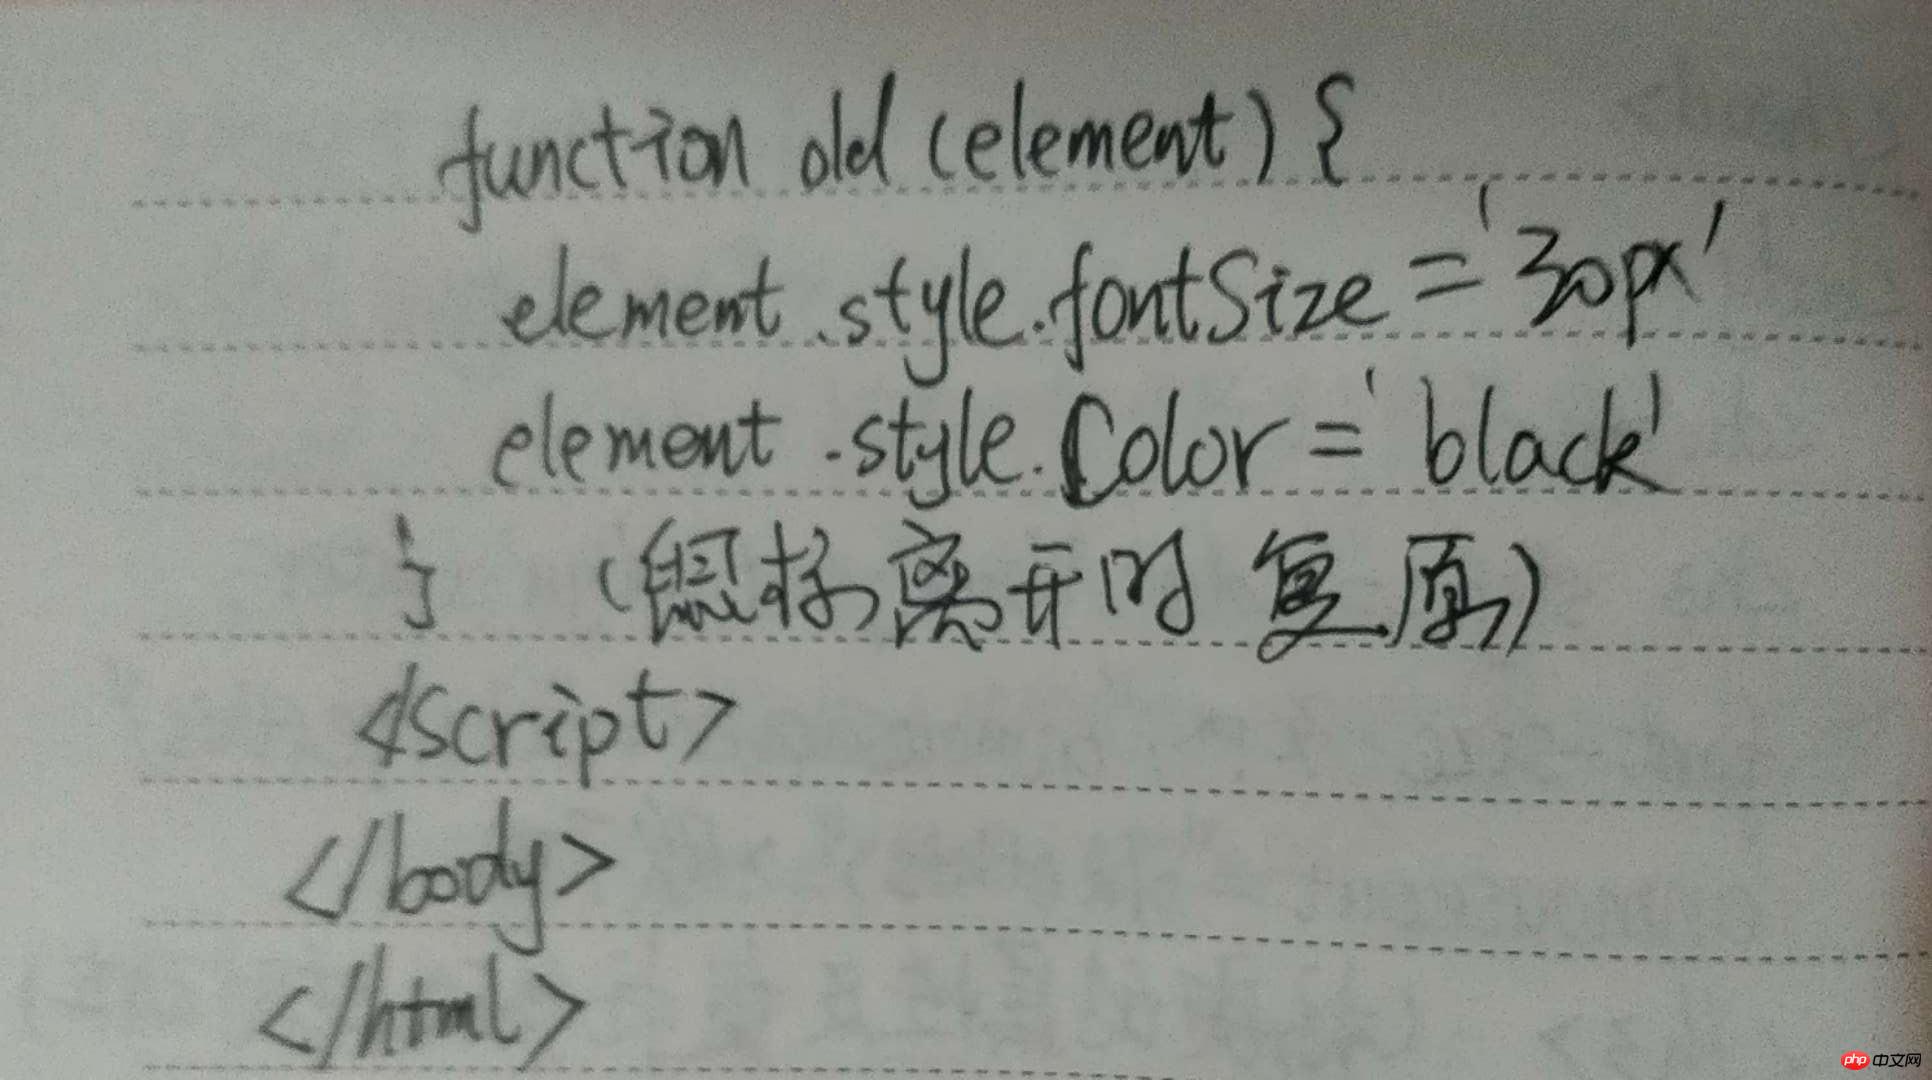 function old (element) {
element.style.fontSize = '30px'
element.style.Color = 'black'
} (鼠标离开时复原)
</script>
</body>
</html>
php 中文网